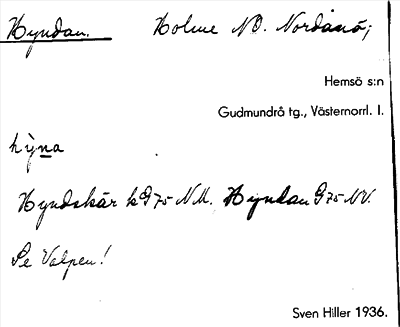 Hyndan. Holme NO. Nordanö;
Hemsö s:n
Gudmundrå tg., Västernorrl. l.
hỳna
Hyndskär k G75 N.M. Hyndan G75 NV.
Se Valpen!
Sven Hiller 1936.